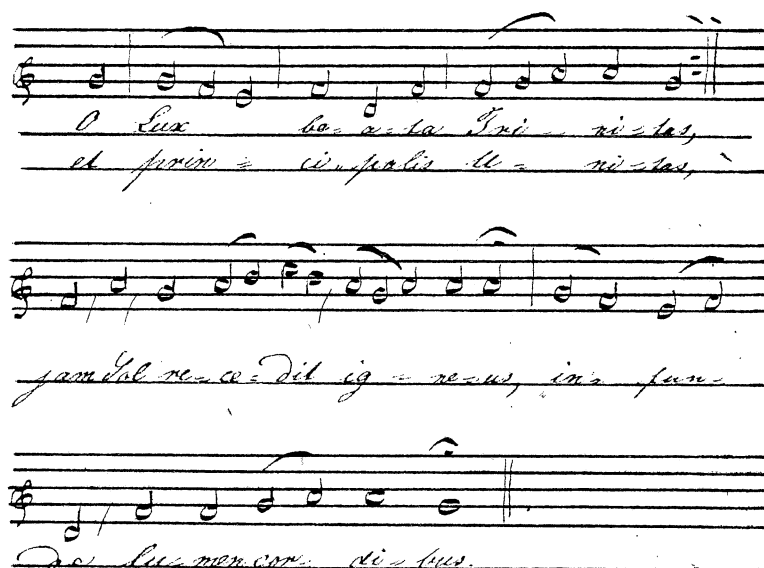 O Lux be-a-ta Tri-ni-tas,
et prin-ci-palis U-ni-tas,
jam Sol re-ce-dit ig-ne-us, in-fun-
de lu-men cor-di-bus.